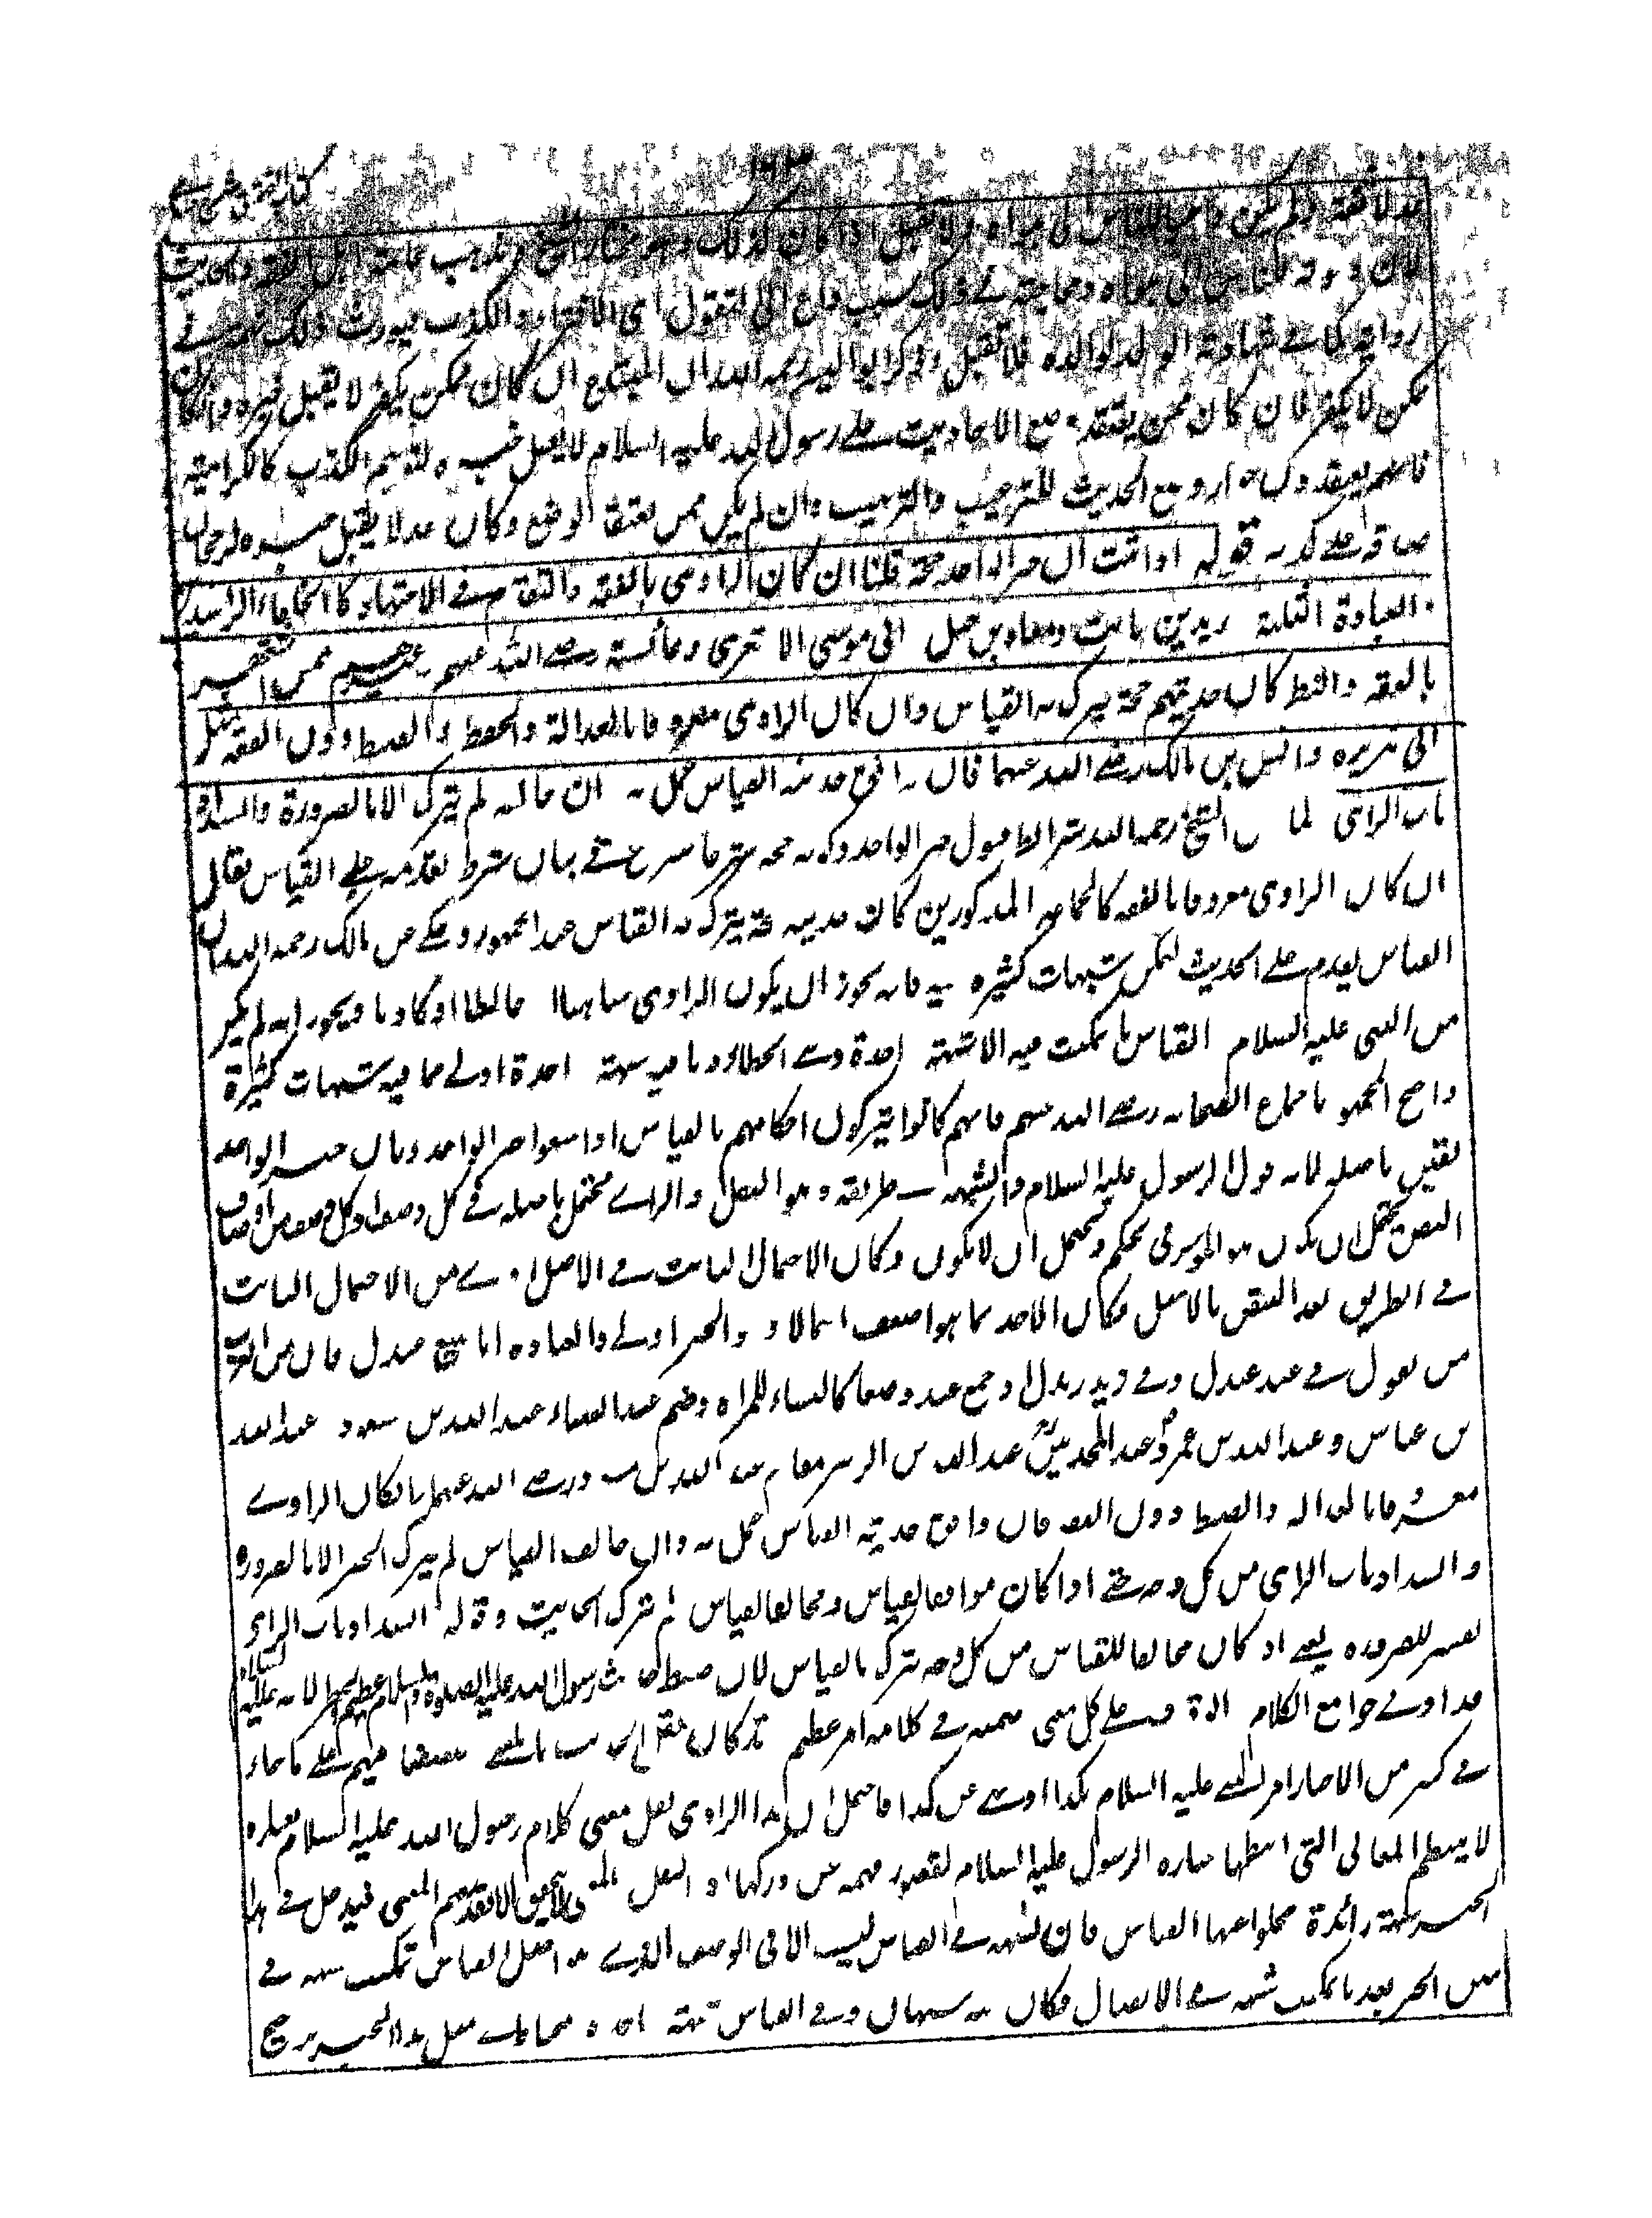 كتاب التحقيق شرح حسامي
لان دعوته الناس الى هواه ومحاجته في ذلك سبب داع الى التقول اى الافتراء والكذب فيورث ذلك تهمة في
روايته كما في شهادة الولد لوالده فلا تقبل وذكر ابو اليسر رحمه الله ان المبتدع ان كان ممن يكفر لا يقبل خبره وان كان
ممن لا يكفر فان كان ممن يعتقد وضع الاحاديث على رسول الله عليه السلام لا يقبل خبره لتوهم الكذب كالكرامية
فانهم يعتقدون جواز وضع الحديث للترغيب والترهيب وان لم يكن ممن يعتقد الوضع وكان عدلا يقبل خبره لرجحان
صدقه على كذبه قوله اذا ثبت ان خبر الواحد حجة قلنا ان كان الراوى بالفقه والتقدم في الاجتهاد كالخلفاء الراشدين
والعبادلة الثلثة وزيد بن ثابت ومعاذ بن جبل وابى موسى الاشعرى وعائشة رضي الله عنهم وغيرهم ممن اشتهر
بالفقه والنظر كان حديثهم حجة يترك به القياس وان كان الراوى معروفا بالعدالة والحفظ والضبط دون الفقه مثل
ابى هريرة وانس بن مالك رضي الله عنهما فان وافق حديثه القياس عمل به وان خالفه لم يترك الا بالضرورة وانسداد
باب الراى لما بين الشيخ رحمه الله شرائط قبول خبر الواحد وكونه حجة شرع في بيان شرط تقدمه على القياس فقال
ان كان الراوى معروفا بالفقه كالجماعة المذكورين كان حديثه حجة يترك به القياس عند الجمهور وحكي عن مالك رحمه الله ان
القياس يقدم على الحديث لتمكن شبهات كثيرة فيه فانه يجوز ان يكون الراوى ساهيا او غالطا او كاذبا ويجوز انه لم يكن
من النبي عليه السلام القياس ما تمكنت فيه الا شبهة واحدة وهي الخطاء وما فيه شبهة واحدة اولى مما فيه شبهات كثيرة
واحتج الجمهور باجماع الصحابة رضي الله عنهم فانهم كانوا يتركون احكامهم بالقياس اذا سمعوا خبر الواحد وبان خبر الواحد
يقين باصله لانه قول الرسول عليه السلام والشبهة في طريقه وهو النقل والراى محتمل باصله في كل وصف وكل وصف من اوصاف
النص يحتمل ان يكون هو المؤثر في الحكم ويحتمل ان لا يكون وكان الاحتمال الثابت في الاصل اقوى من الاحتمال الثابت
في الطريق بعد التيقن بالاصل فكان الاخذ بما هو اضعف احتمالا وهو الخبر اولى والعبادلة اما جمع عبدل فان من العرب
من يقول في عبد عبدل وفي زيد زيدل او جمع عبد وضعا كالنساء للمراة وهم عند الفقهاء عبد الله بن مسعود وعبد الله
بن عباس وعبد الله بن عمر وعند المحدثين عبد الله بن الزبير مقام عبد الله بن مسعود رضي الله عنهم اما ان كان الراوي
معروفا بالعدالة والضبط دون الفقه فان وافق حديثه القياس عمل به وان خالف القياس لم يترك الخبر الا بالضرورة
وانسداد باب الراى من كل وجه حتى اذا كان موافقا لقياس ومخالفا لقياس لم يترك الحديث وقوله انسداد باب الراى
تفسير للضرورة يعني اذا كان مخالفا للقياس من كل وجه يترك بالقياس لان ضبط حديث رسول الله عليه الصلوة والسلام عظيم الخطر لانه عليه السلام
قد اوتي جوامع الكلام والوقوف على كل معنى ضمنه في كلامه امر عظيم وقد كان نقل الحديث بالمعنى مستفيضا فيهم على ما جاء
في كثير من الاخبار امر النبي عليه السلام بكذا ونهى عن كذا فاحتمل ان هذا الراوى نقل معنى كلام رسول الله عليه السلام بعبارة
لا ينتظم المعاني التي انتظمها عبارة الرسول عليه السلام لقصور فهمه عن دركها اذ النقل لا يتحقق الا بقدر فهم المعنى فيدخل في هذا
الخبر شبهة زائدة يخلو عنها القياس فان الشبهة في القياس ليست الا في الوصف الذي هو اصل القياس وتمكنت شبهة في
متن الخبر بعد ما تمكنت شبهة في الاتصال فكان فيه شبهتان وفي القياس شبهة واحدة